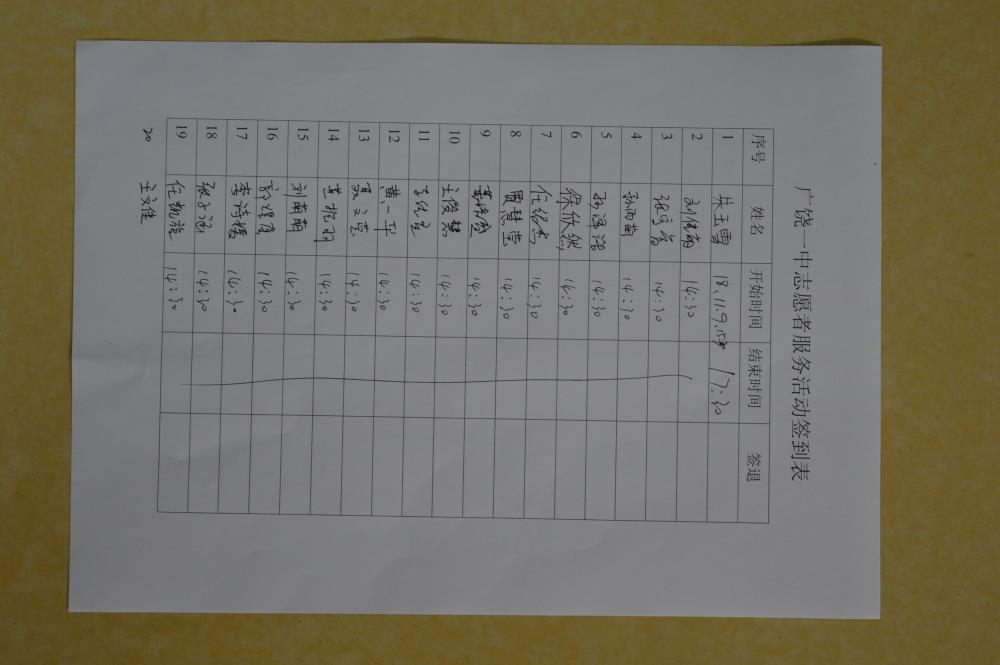 广饶一中志愿者服务活动签到表
序号 姓名 开始时间 结束时间 签退
1 朱玉雪 18.11.9. 17:30
2 14:30
3 14:30
4 孙雨萌 14:30
5 14:30
6 梁欣然 14:30
7 任绍杰 14:30
8 贾慧莹 14:30
9 14:30
10 王俊慧 14:30
11 14:30
12 黄一华 14:30
13 夏文慧 14:30
14 14:30
15 刘萌萌 14:30
16 14:30
17 李诗媛 14:30
18 张子涵 14:30
19 任凯旋 14:30
20 王文佳